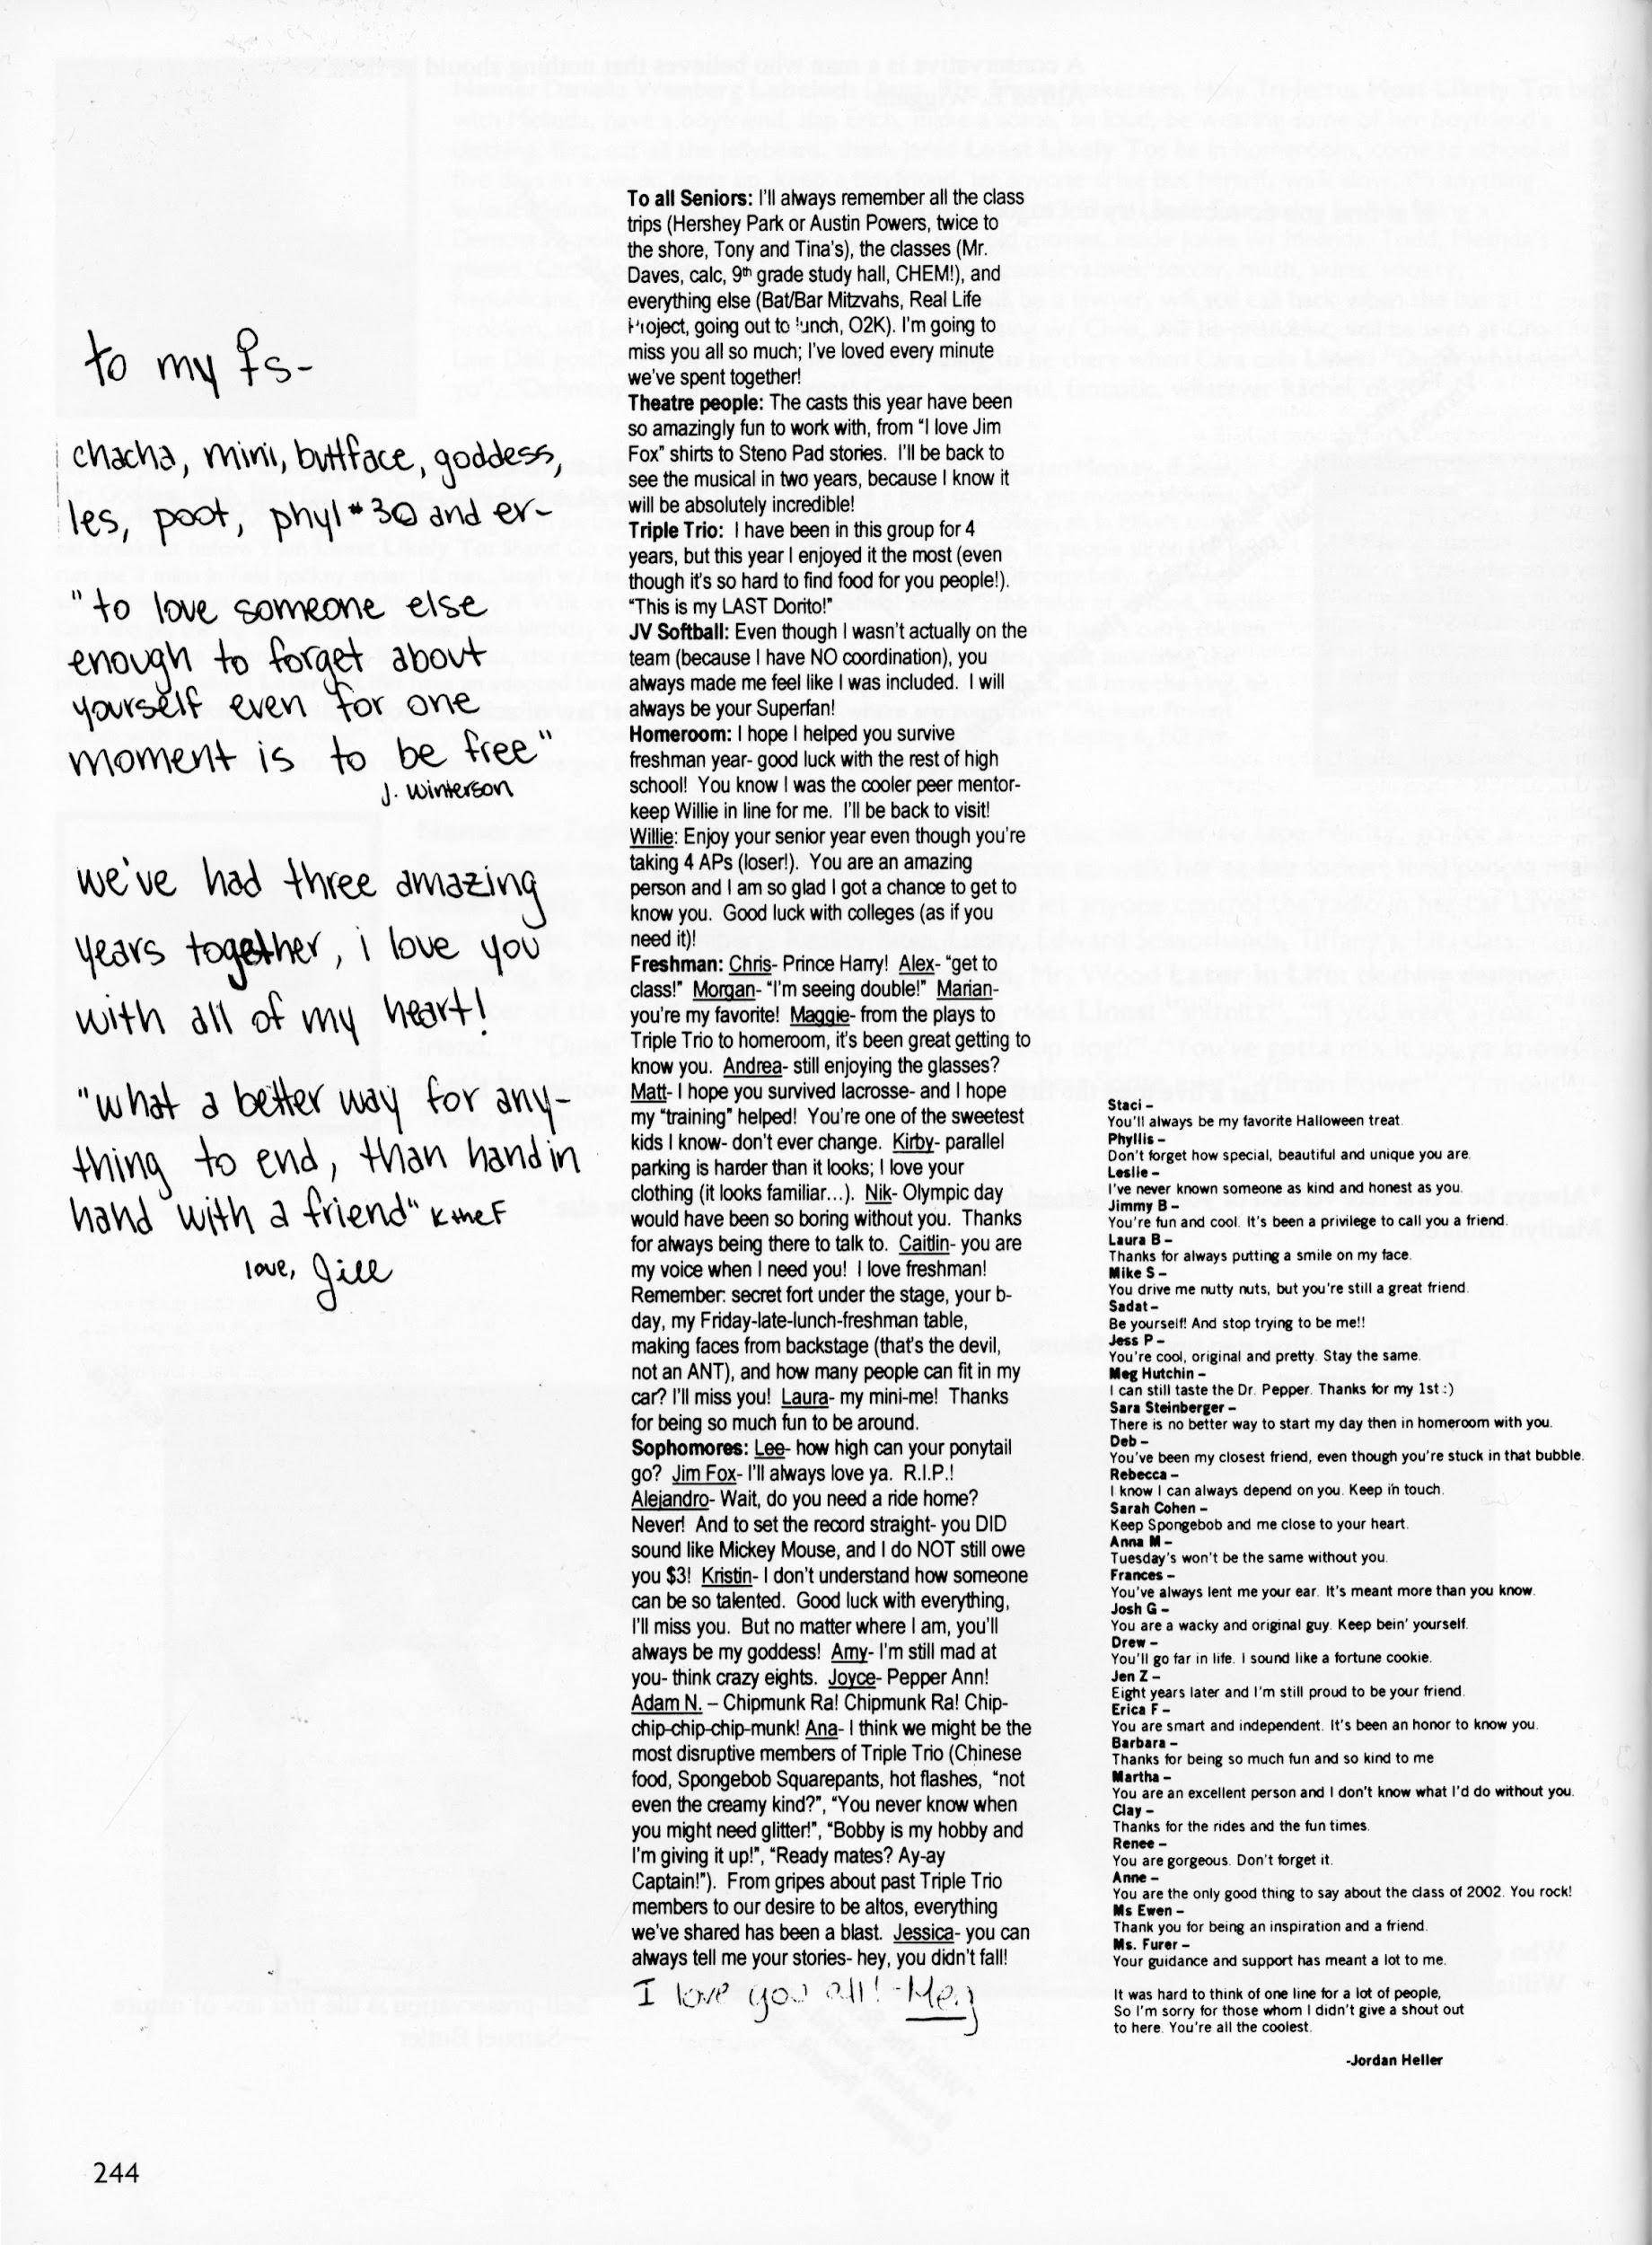 to my fs-
chacha, mini, buttface, goddess,
les, poot, phyl #30 and er-
"to love someone else
enough to forget about
yourself even for one
moment is to be free"
J. Winterson
we've had three amazing
years together, i love you
with all of my heart!
"what a better way for any-
thing to end, than hand in
hand with a friend" K the F
love, Jill
To all Seniors: I'll always remember all the class
trips (Hershey Park or Austin Powers, twice to
the shore, Tony and Tina's), the classes (Mr.
Daves, calc, 9th grade study hall, CHEM!), and
everything else (Bat/Bar Mitzvahs, Real Life
Project, going out to lunch, O2K). I'm going to
miss you all so much; I've loved every minute
we've spent together!
Theatre people: The casts this year have been
so amazingly fun to work with, from "I love Jim
Fox" shirts to Steno Pad stories. I'll be back to
see the musical in two years, because I know it
will be absolutely incredible!
Triple Trio: I have been in this group for 4
years, but this year I enjoyed it the most (even
though it's so hard to find food for you people!).
"This is my LAST Dorito!"
JV Softball: Even though I wasn't actually on the
team (because I have NO coordination), you
always made me feel like I was included. I will
always be your Superfan!
Homeroom: I hope I helped you survive
freshman year- good luck with the rest of high
school! You know I was the cooler peer mentor-
keep Willie in line for me. I'll be back to visit!
Willie: Enjoy your senior year even though you're
taking 4 APs (loser!). You are an amazing
person and I am so glad I got a chance to get to
know you. Good luck with colleges (as if you
need it)!
Freshman: Chris- Prince Harry! Alex- "get to
class!" Morgan- "I'm seeing double!" Marian-
you're my favorite! Maggie- from the plays to
Triple Trio to homeroom, it's been great getting to
know you. Andrea- still enjoying the glasses?
Matt- I hope you survived lacrosse- and I hope
my "training" helped! You're one of the sweetest
kids I know- don't ever change. Kirby- parallel
parking is harder than it looks; I love your
clothing (it looks familiar...). Nik- Olympic day
would have been so boring without you. Thanks
for always being there to talk to. Caitlin- you are
my voice when I need you! I love freshman!
Remember: secret fort under the stage, your b-
day, my Friday-late-lunch-freshman table,
making faces from backstage (that's the devil,
not an ANT), and how many people can fit in my
car? I'll miss you! Laura- my mini-me! Thanks
for being so much fun to be around.
Sophomores: Lee- how high can your ponytail
go? Jim Fox- I'll always love ya. R.I.P.!
Alejandro- Wait, do you need a ride home?
Never! And to set the record straight- you DID
sound like Mickey Mouse, and I do NOT still owe
you $3! Kristin- I don't understand how someone
can be so talented. Good luck with everything,
I'll miss you. But no matter where I am, you'll
always be my goddess! Amy- I'm still mad at
you- think crazy eights. Joyce- Pepper Ann!
Adam N. – Chipmunk Ra! Chipmunk Ra! Chip-
chip-chip-chip-munk! Ana- I think we might be the
most disruptive members of Triple Trio (Chinese
food, Spongebob Squarepants, hot flashes, "not
even the creamy kind?", "You never know when
you might need glitter!", "Bobby is my hobby and
I'm giving it up!", "Ready mates? Ay-ay
Captain!"). From gripes about past Triple Trio
members to our desire to be altos, everything
we've shared has been a blast. Jessica- you can
always tell me your stories- hey, you didn't fall!
I love you all! -Meg
Staci –
You'll always be my favorite Halloween treat.
Phyllis –
Don't forget how special, beautiful and unique you are.
Leslie –
I've never known someone as kind and honest as you.
Jimmy B –
You're fun and cool. It's been a privilege to call you a friend.
Laura B –
Thanks for always putting a smile on my face.
Mike S –
You drive me nutty nuts, but you're still a great friend.
Sadat –
Be yourself! And stop trying to be me!!
Jess P –
You're cool, original and pretty. Stay the same.
Meg Hutchin –
I can still taste the Dr. Pepper. Thanks for my 1st :)
Sara Steinberger –
There is no better way to start my day then in homeroom with you.
Deb –
You've been my closest friend, even though you're stuck in that bubble.
Rebecca –
I know I can always depend on you. Keep in touch.
Sarah Cohen –
Keep Spongebob and me close to your heart.
Anna M –
Tuesday's won't be the same without you.
Frances –
You've always lent me your ear. It's meant more than you know.
Josh G –
You are a wacky and original guy. Keep bein' yourself.
Drew –
You'll go far in life. I sound like a fortune cookie.
Jen Z –
Eight years later and I'm still proud to be your friend.
Erica F –
You are smart and independent. It's been an honor to know you.
Barbara –
Thanks for being so much fun and so kind to me
Martha –
You are an excellent person and I don't know what I'd do without you.
Clay –
Thanks for the rides and the fun times.
Renee –
You are gorgeous. Don't forget it.
Anne –
You are the only good thing to say about the class of 2002. You rock!
Ms Ewen –
Thank you for being an inspiration and a friend.
Ms. Furer –
Your guidance and support has meant a lot to me.
It was hard to think of one line for a lot of people,
So I'm sorry for those whom I didn't give a shout out
to here. You're all the coolest.
-Jordan Heller
244